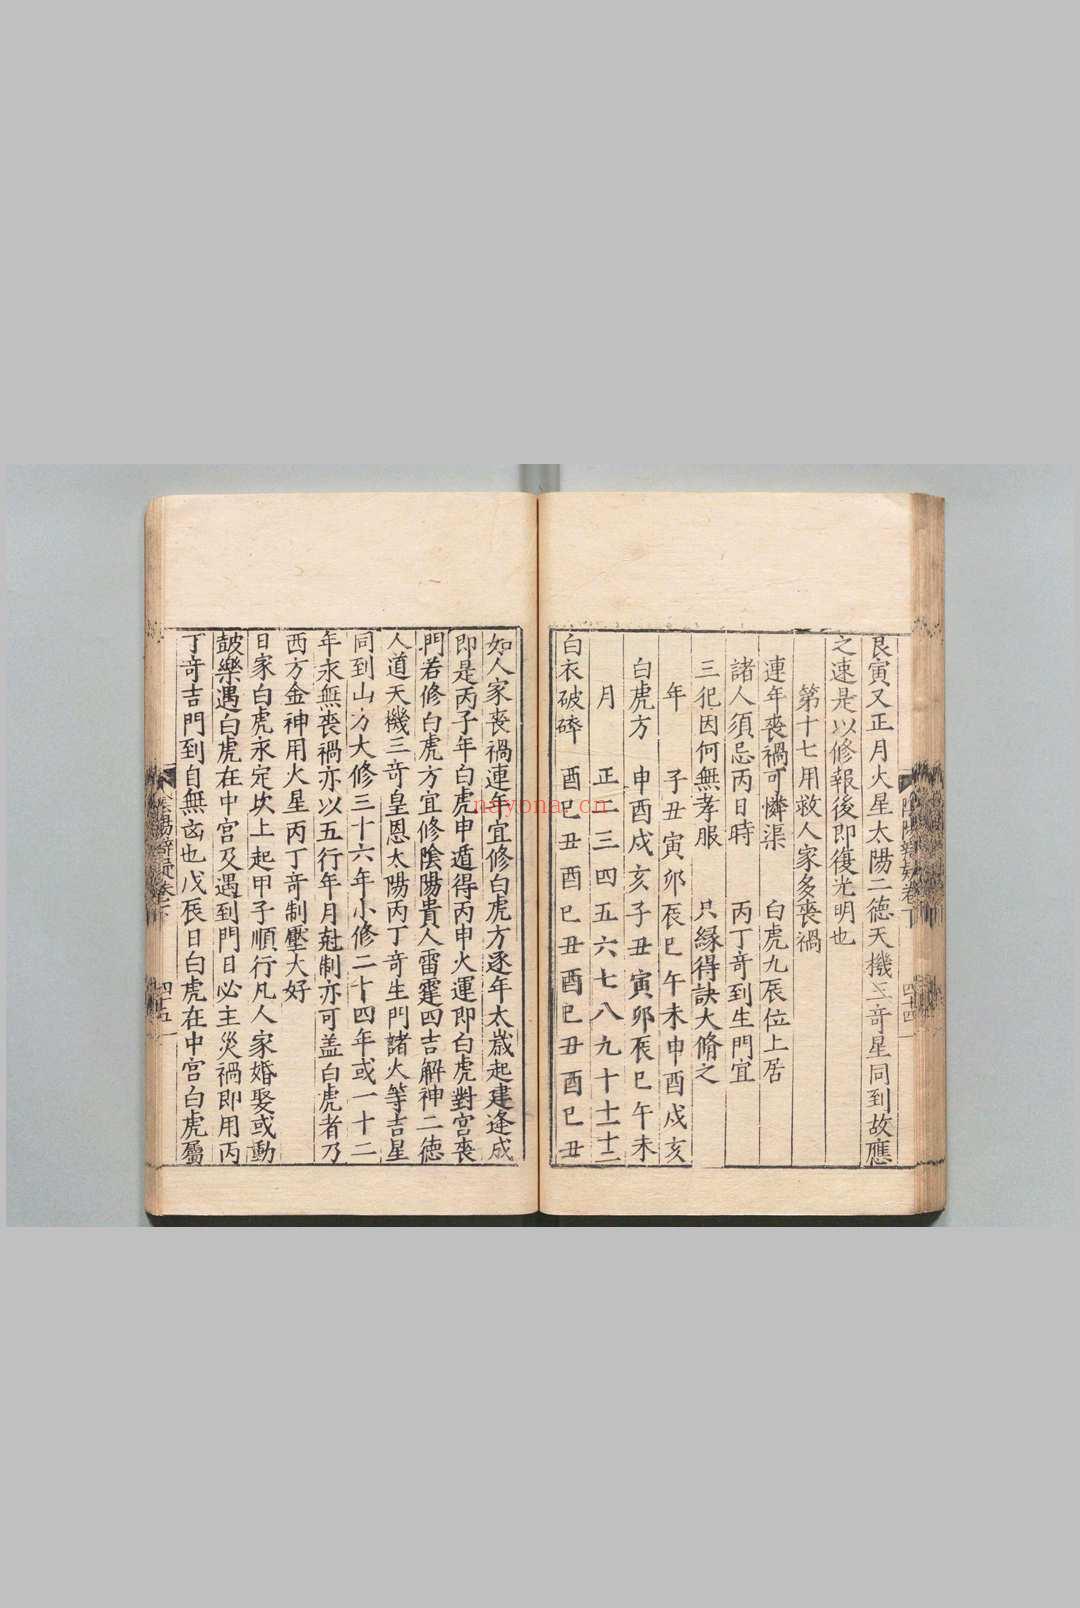 艮寅又正月火星太陽二德天機三竒星同到故應
之速是以修報後即復光明也
第十七用救人家多喪禍
連年喪禍可憐渠 白虎九辰位上居
諸人須忌丙日時 丙丁竒到生門宜
三犯因何無孝服 只縁得訣大脩之
年 子丑寅卯辰巳午未申酉戌亥
白虎方 申酉戌亥子丑寅卯辰巳午未
月 正二三四五六七八九十十一十二
白衣破碎 酉巳丑酉巳丑酉巳丑酉巳丑
如人家喪禍連年宜修白虎方逐年太歲起建逢成
即是丙子年白虎申遁得丙申火運即白虎對宫喪
門若修白虎方宜修陰陽貴人雷霆四吉解神二德
人道天機三竒皇恩太陽丙丁竒生門諸火等吉星
同到山方大修三十六年小修二十四年或一十二
年永無喪禍亦以五行年月尅制亦可盖白虎者乃
西方金神用火星丙丁竒制壓大好
日家白虎永定坎上起甲子順行凡人家婚娶或動
鼓樂遇白虎在中宫及遇到門日必主災禍即用丙
丁竒吉門到自無凶也戊辰日白虎在中宫白虎屬
卷下 四十四
卷下 四十五
nayona.cn